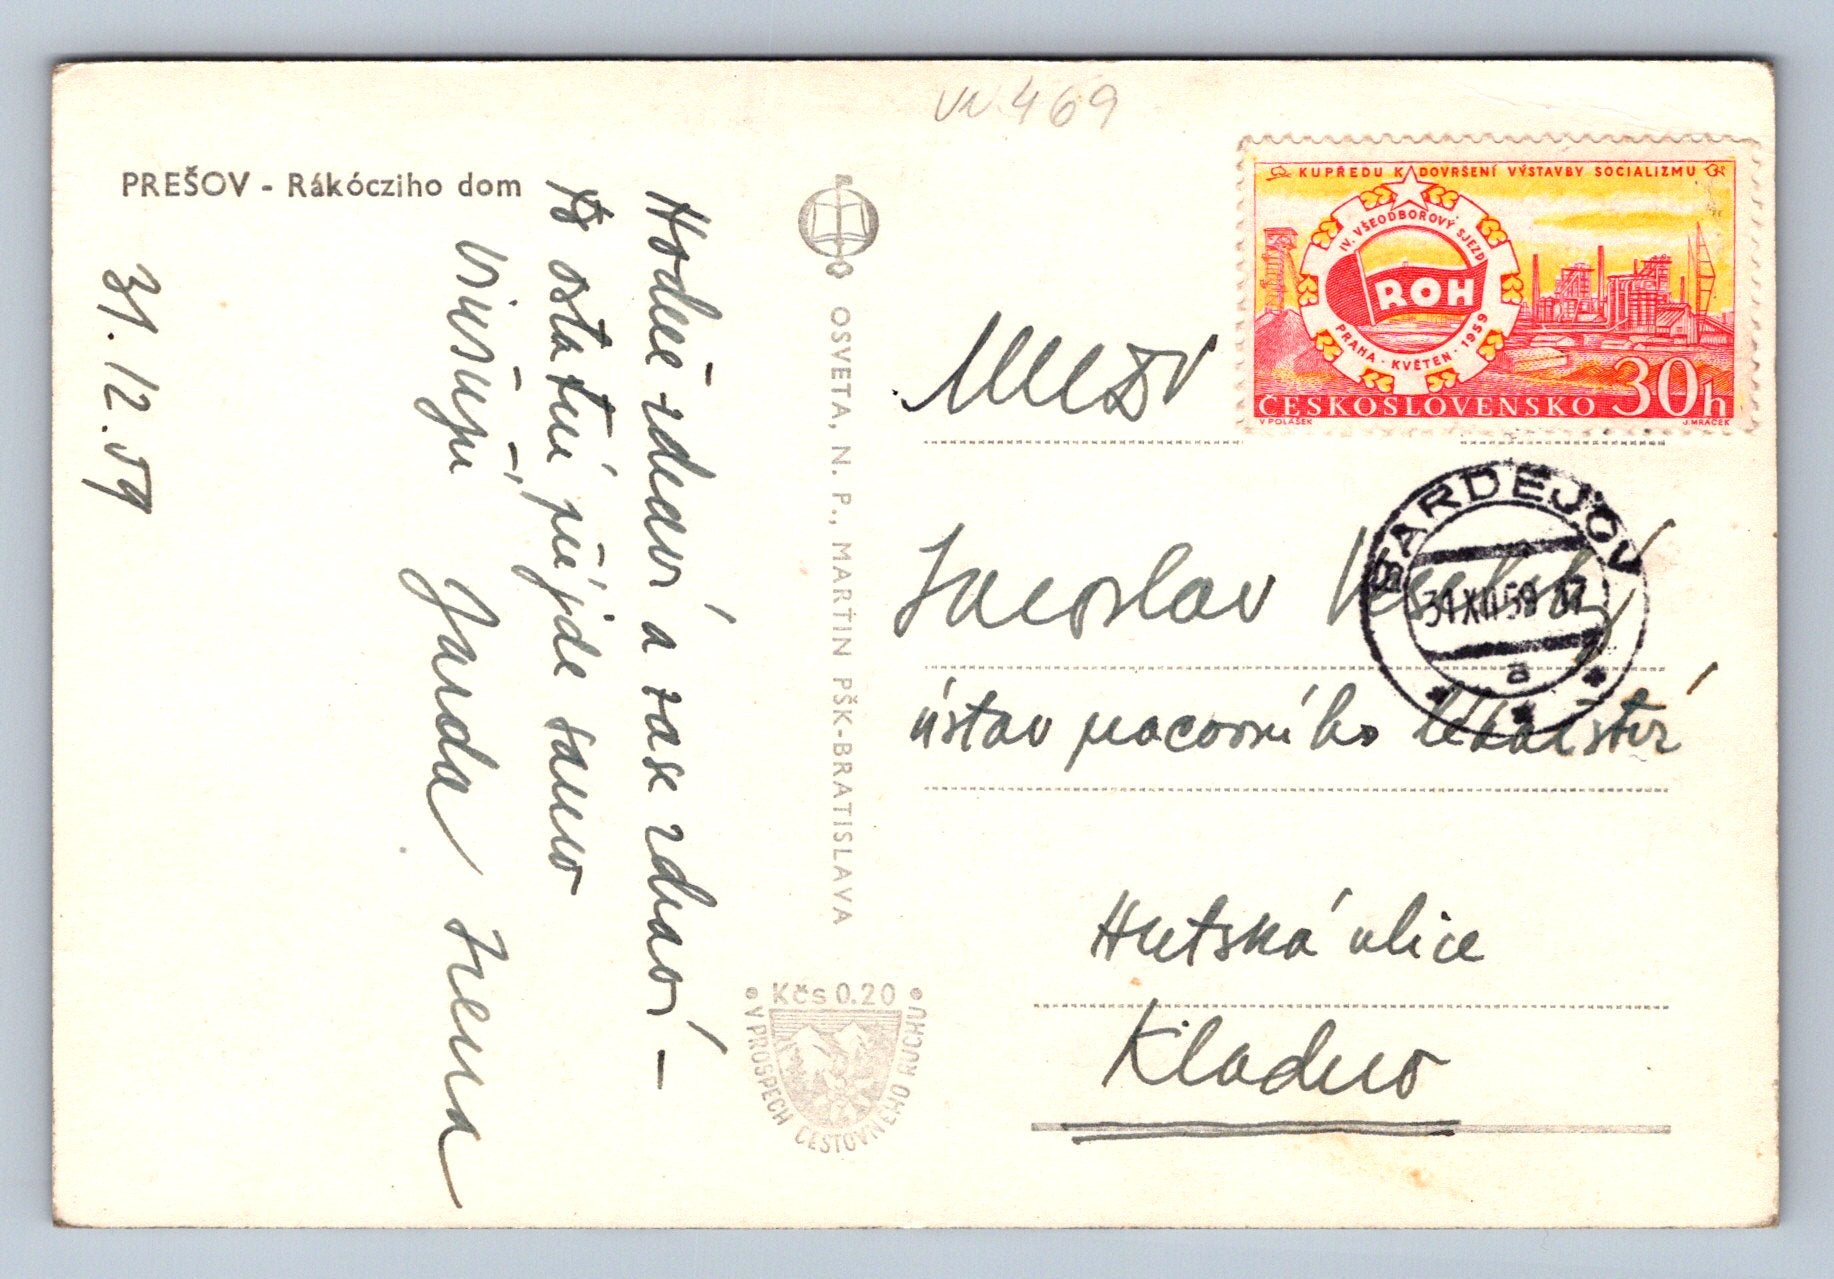 VV.469
PREŠOV - Rákócziho dom
31.12.59
Hodně zdraví a zase zdraví –
to ostatní přijde samo
Jarda Irena
OSVETA, N. P., MARTIN PŠK-BRATISLAVA
Kčs 0.20
V PROSPECH CESTOVNÉHO RUCHU
KUPŘEDU K DOVRŠENÍ VÝSTAVBY SOCIALIZMU
IV. VŠEODBOROVÝ SJEZD
ROH
PRAHA · KVĚTEN · 1959
ČESKOSLOVENSKO 30h
V POLÁŠEK J. MRÁČEK
BARDEJOV
31 XII 59 17
a
MUDr
Jaroslav Veselský
ústav pracovního lékařství
Hutská ulice
Kladno